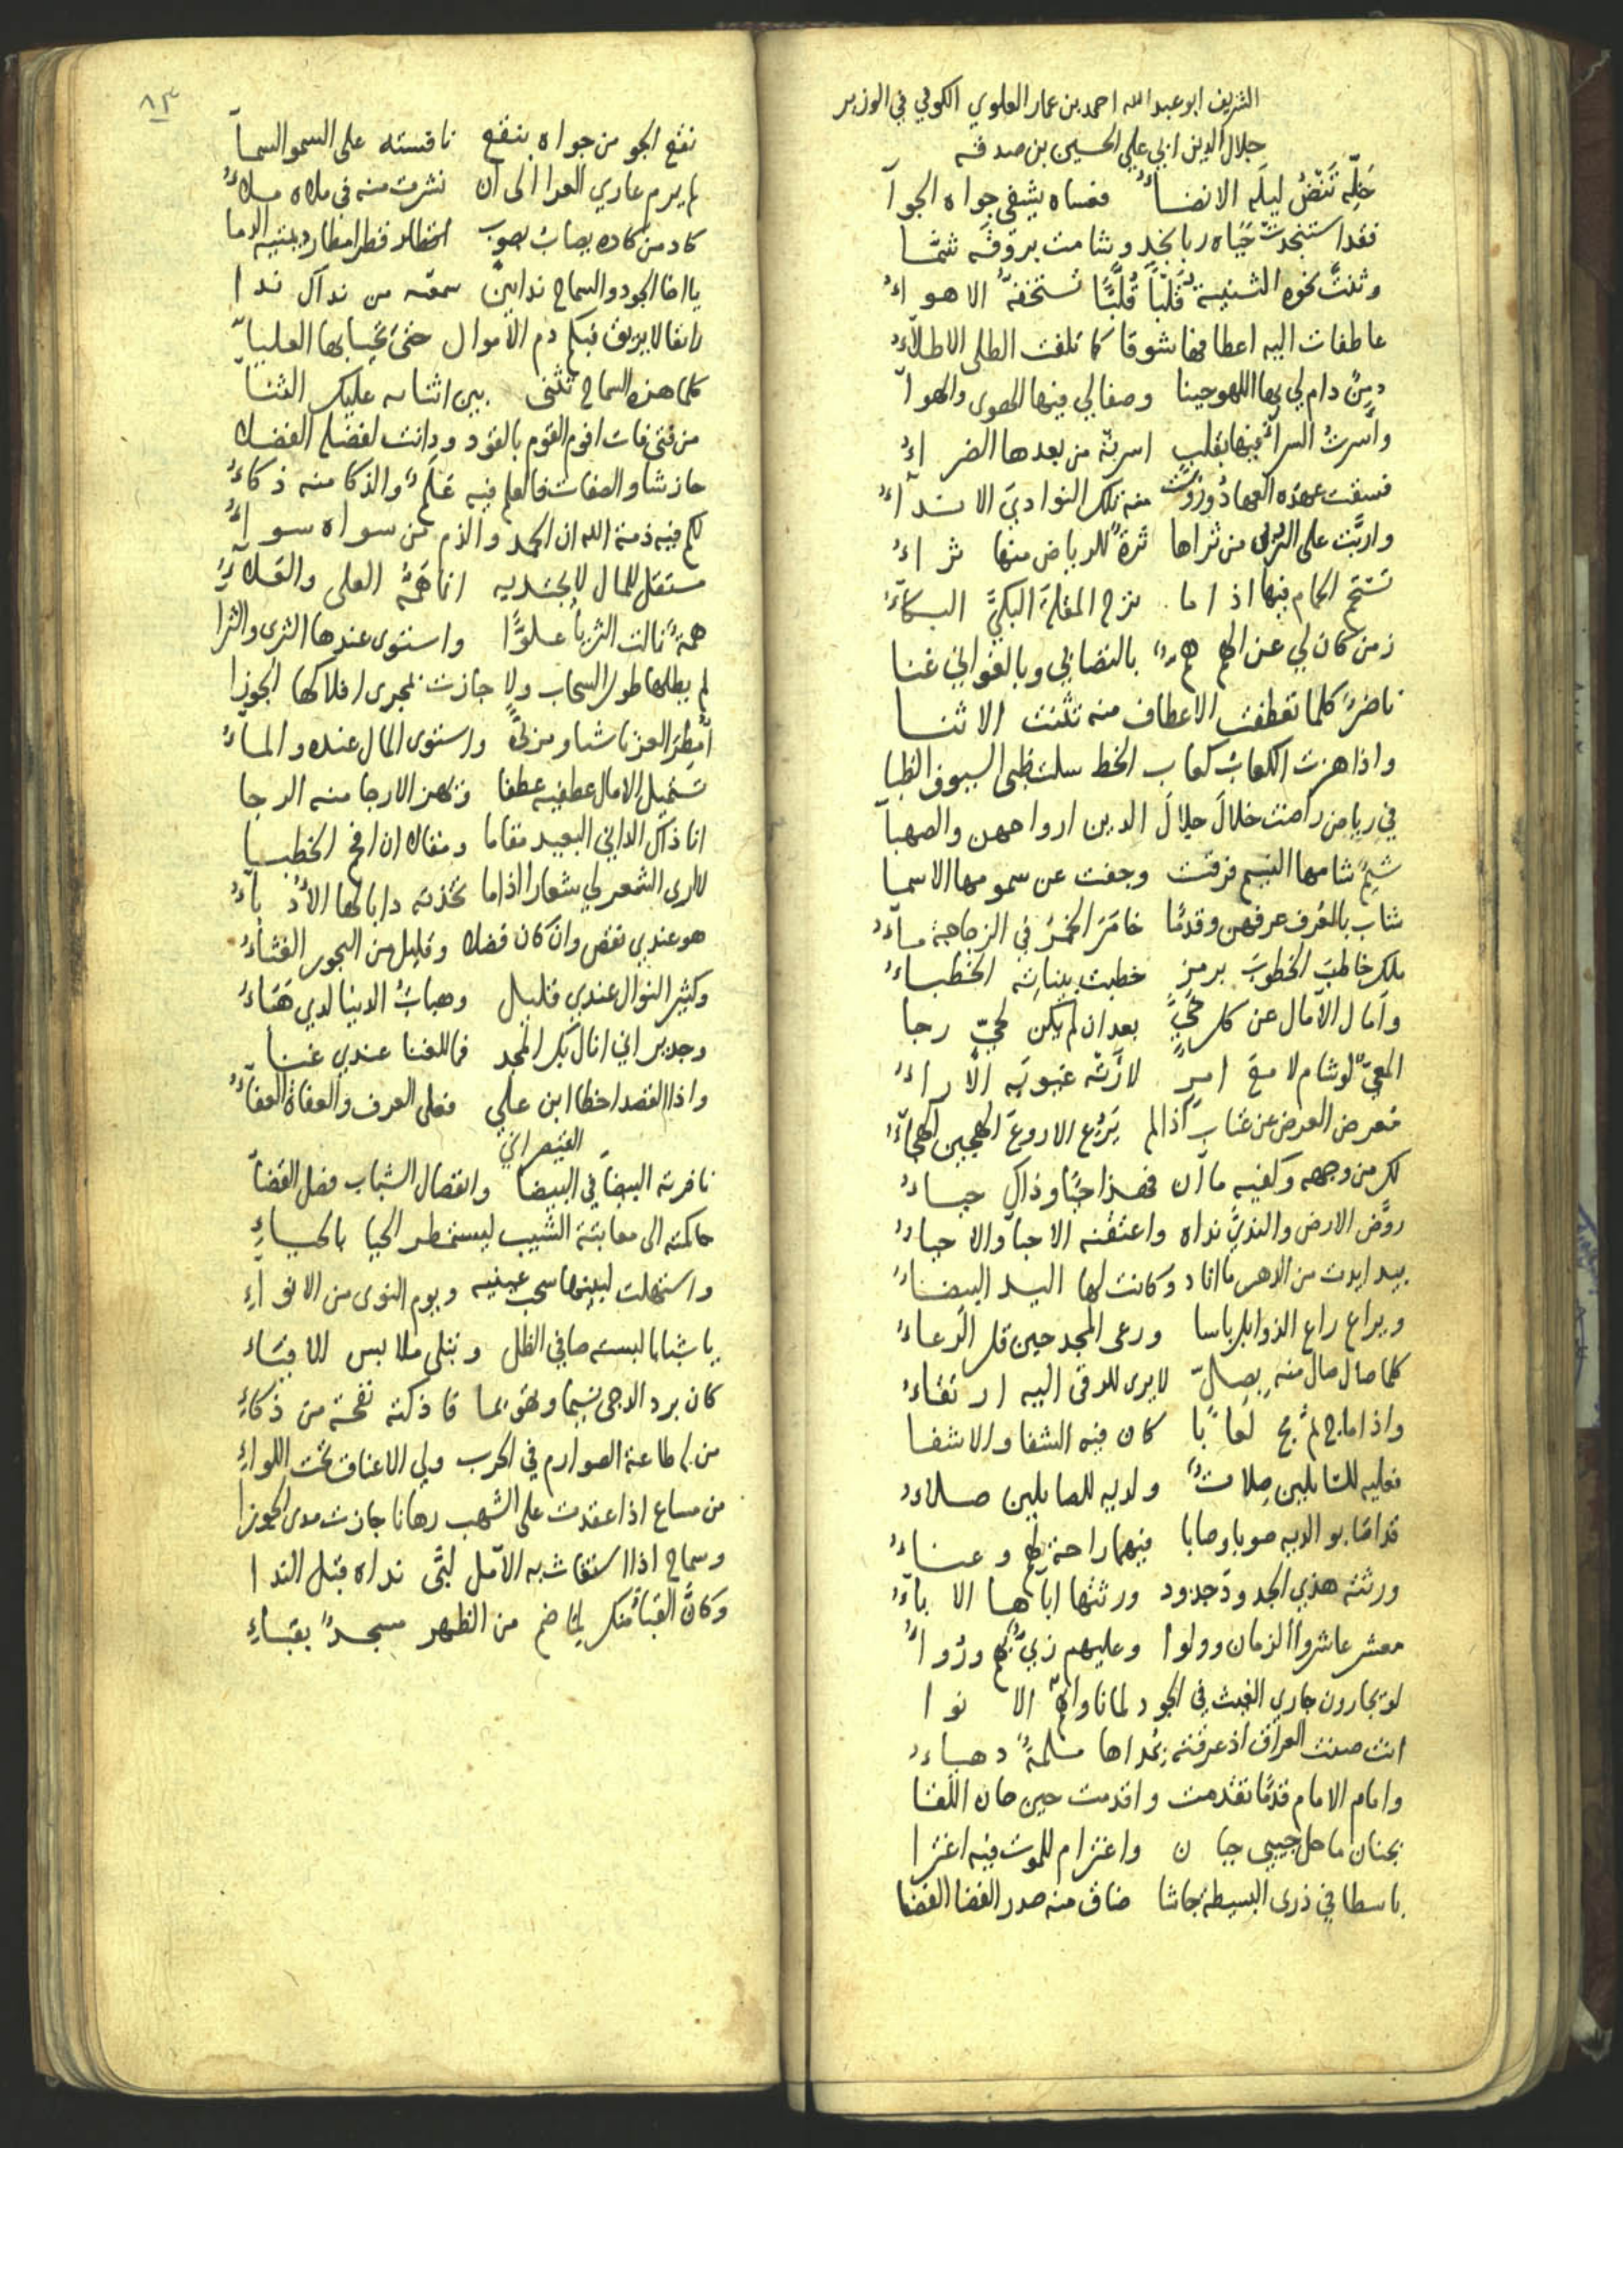 الشريف ابو عبد الله احمد بن عمار العلوي الكوفي في الوزير
جلال الدين ابي علي الحسين بن صدقه
خلّه تنض ليله الانضاء فعساه يشفي جواه الجوآ
فقد استنجدت حياه ربا نجد وشامت بروقه شمّا
وثنت نحوه الثنية قلبا قلّبا تستخفه الاهواء
عاطفات اليه اعطافها شوقا كما تلفت الطلى الاطلاء
دمن دام لي بها اللهو حينا وصفا لي فيها الهوى والهوآ
واسرت السرآ فيها بقلب اسرته من بعدها الضراء
فسقت عهده العهاد وروت منه تلك النوادي الانداء
واربّت على الربى من ثراها ثرة للرياض منها ثراء
تستحم الحمام فيها اذا ما نزح المقلة البكيّ البكاء
زمن كان لي عن الهم هم بالتصابي وبالغواني غنا
ناضر كلما تعطفت الاعطاف منه تثنت الاثنا
واذا هزت الكعاب كعاب الخط سلت ظبى السيوف الظبا
في رياض راضت خلال جلال الدين ارواحهن والصهبآ
شيم شامها النسيم فرقت وجفت عن سمومها الاسما
شاب بالعُرف عرفهن وقدمًا خامَرَ الخمرَ في الزجاجة ماء
ملك خاطب الخطوبَ برمز خطبت بيناته الخطباء
وآمال الآمال عن كل حيّ بعد ان لم يكن لحيّ رجا
المعيّ لو شام لامع امر لأرته غيوبَه الآراء
معرض العرض عن عتاب اذا لم يَرُع الاروع الهجين الهجاء
لك من وجهه وكفيه ما ان فهذا حيًا وذاك حياء
روّض الارض والنديّ نداه واعتفته الاحيا والاحياء
بيد ايدت من الدهر ما اناد وكانت لها اليد البيضاء
ويراع راع الذوابل باسا ورعى المجد حين قل الرعاء
كلما صال صال منه بصلّ لا يرى للرقى اليه ارتقاء
واذا ما مج لم يمج لعابًا كان فيه الشفا والاشفا
فعليه للسّايلين صلات ولديه للصايلين صلاء
قد اصّابو الديه صوبا وصابا فيهما راحة لهم وعناء
ورثته هذي الجدود جدود ورثتها اباهها الاباء
معشر عاشروا الزمان وولوا وعليهم زيّ لهم ورواء
لو يجارون جاري الغيث في الجود لما ناواهمُ الانوا
انت صنت العراق اذ عرفته بمداها ملمة دهياء
وامام الامام قدمًا تقدمت واقدمت حين حان اللقا
بجنان ما حل جيبي جبان واعتزام للموت فيه اعتزا
باسطا في ذرى البسيطة جاشا ضاق منه صدر الفضا الفضا
٨٣
نقع الجو من جواه بنقع نافسته على السمو السمآ
لم يرم عاري العرا الى ان نشرت منه في ملاه ملاء
كاد من كاده يصاب بصوب
يا اخا الجود والسماح ندا اين سمعه من نداك ندا
رانقا لا يريق فيكم دم الاموال حتى تحيا بها العليآ
كلما هزه السماح تثنى بين اثنائه عليك الثنا
من فتى فات اقوم القوم بالقود ودانت لفضله الفضلا
حاز شاو الصفات فالعلم فيه عَلَم والذكا منه ذكاء
لكم فيه ذمة الله ان الحمد والذم من سواه سواء
مستقل للمال لا يجتديه انما همّه العلى والعلاء
همة نالت الثريا علوّا واستوى عندها الثرى والثرا
لم يطلها طول السحاب ولا جازت بمجرى افلاكها الجوزا
امطر العز باشا ومزنة واستوى المال عنده والماء
تستميل الامال عطفيه عطفا وتهز الارجا منه الرجا
انا ذاك الداني البعيد مقاما ومقالا ان افحم الخطبا
لا ارى الشعر لي شعارا اذا ما تخذته دابا لها الادباء
هو عندي نقص وان كان فضلا وقليل من البحور الغثاء
وكثير النوال عندي قليل وهبات الدنيا لدي هباء
وجدير اني انال بك المجد فما للغنا عندي غنا
واذا القصد اخطا ابن علي فعلى العرف والعفاة العفاء
القيصراني
نافرته البيضا في البيضا وانفصال الشباب فصل القضآ
حاكمته الى معاتبة الشيب ليستمطر الحيا بالحياءِ
واستهلت لبينها سحب عينيه ويوم النوى من الانواءِ
يا شبابا لبسته صافي الظل وتبلى ملابس الافياء
كان برد الدجى نسيما وتهويما فاذكته نفحة من ذكاءِ
من لها طاعة الصوارم في الحرب ولي الاعناق تحت اللواءِ
من مساع اذا عقدت على الشهب رهانا جازت مدى الجوزا
وسماح اذا استغاث به الآمل لبّى نداه قبل الندا
وكانّ القباء منك لما ضم من الطهر مسجد بقباءِ